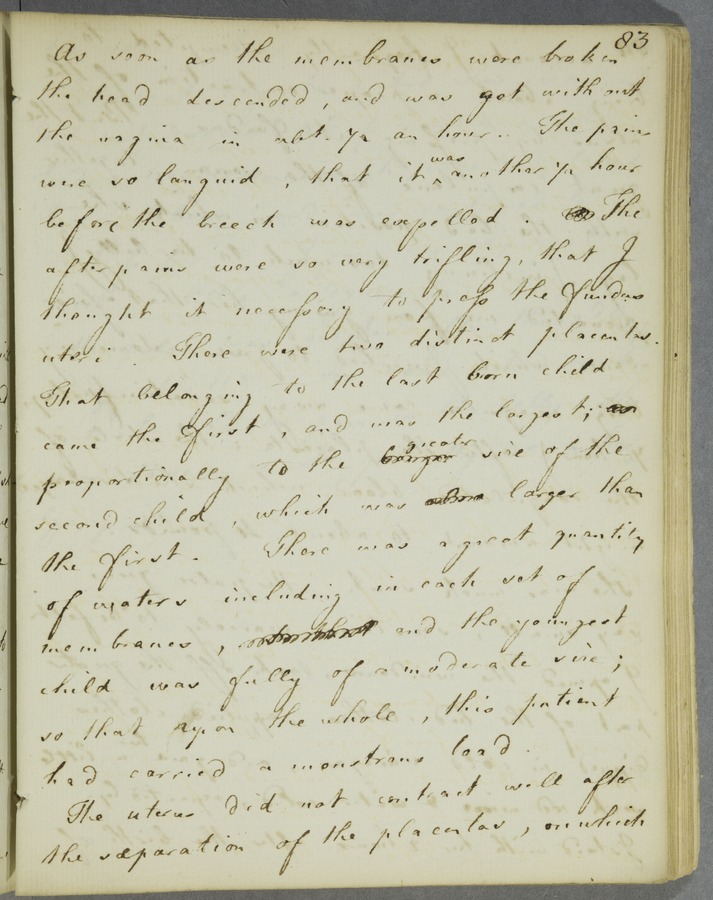 83
As soon as the membranes were broken
the head descended, and was got without
the vagina in abt. 1/2 an hour. The pains
were so languid, that it was another 1/2 hour
before the breech was expelled. The
afterpains were so very trifling, that I
thought it necessary to press the fundus
uteri. There were two distinct placentas.
That belonging to the last born child
came the first, and was the largest;
proportionally to the greater size of the
second child, which was larger than
the first. There was a great quantity
of waters including in each set of
membranes, and the youngest
child was fully of a moderate size;
so that upon the whole, this patient
had carried a monstrous load.
The uterus did not contract well after
the sæparation of the placentas, on which